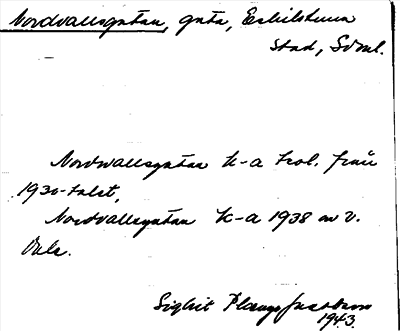 Nordvallsgatan, gata, Eskilstuna
stad, Södml.
Nordwallsgatan k-a trol. från
1930-talet,
Nordvallsgatan k-a 1938 av V.
Sigbrit Plænge Jacobson
1943.